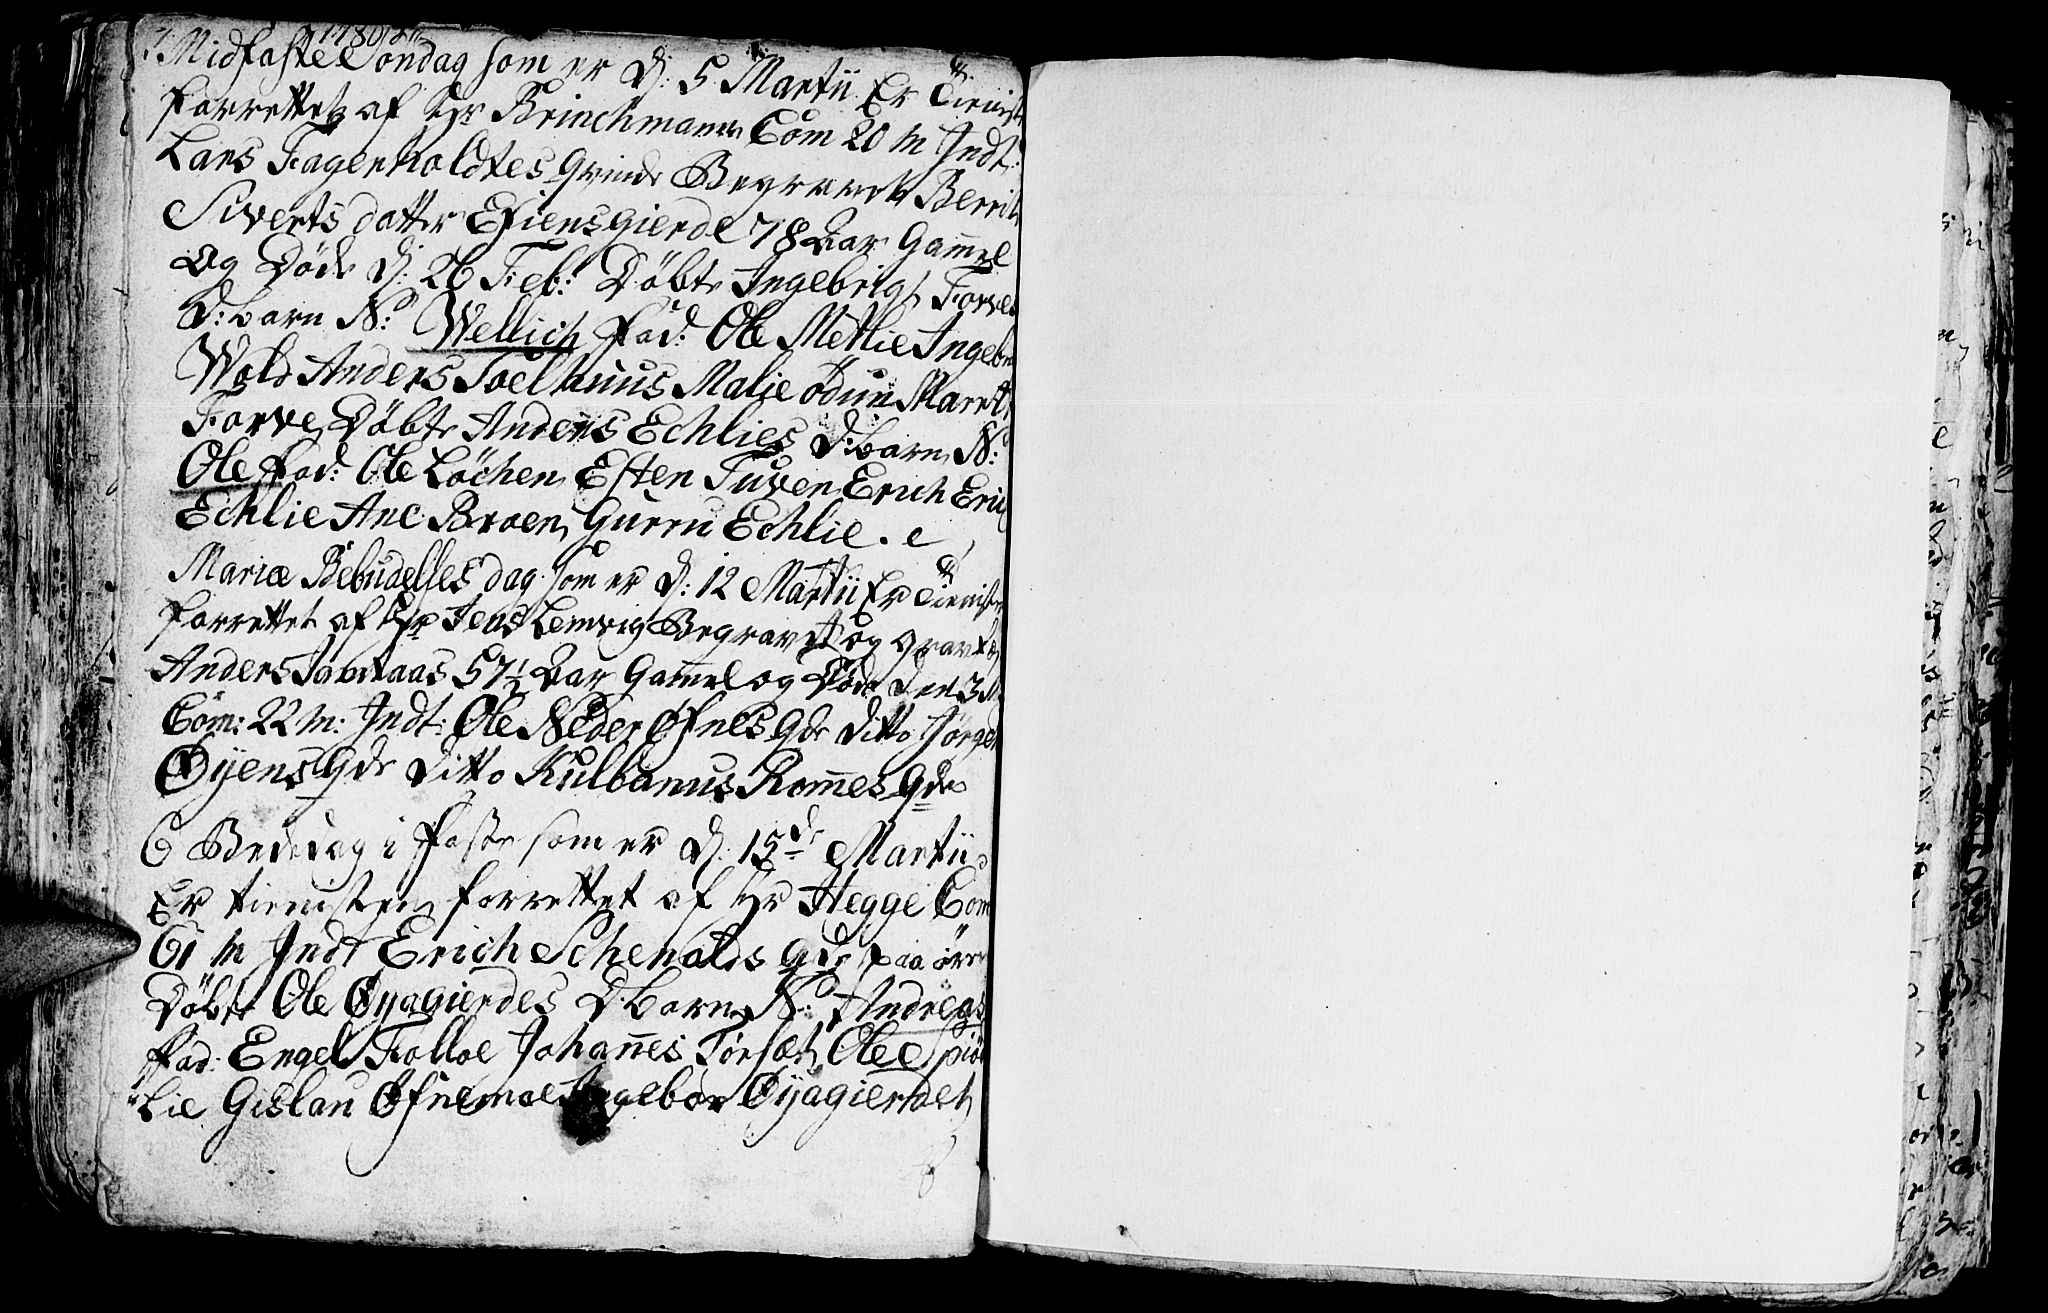 1780
Midfaste Søndag som er D: 5 Martii Er Tienist
forrettet af Hr Brinchmann Com 20 M Indt:
Lars Fagerholdtes Qvinde Begravet Berrit
Siverts datter Efiensgierde 78 Aar Gam̄el
og Døde D: 26 Feb: Døbte Ingebrigt Forve
D:barn N: Wellich fad: Ole Metlie Ingebr
Wold Anders Soelhuus Malie ødun Marrit
Forve Døbte Anders Echlies D:barn N:
Ole fad: Ole Löchen Esten Tuven Erich Eric
Echlie Ane Broen Gurru Echlie
Mariæ Bebudelses dag som er D: 12 Martii Er Tienist
forrettet af Hr Jens Lemvig Begravet og
Anders 57½ Aar Gam̄el og Døde den 3 M
Com: 22 M: Indt: Ole Neder Øfnes Qde ditto Jörgen
Øyens Qde ditto Kulbanus Rom̄es Qde
6 Bededag i Faste som er D: 15de Martii
Er tienisten forrettet af Hr Hegge Com
61 M Indt Erich Schenalds Qde paa
Døbt Ole Øyagierdes D:barn N: Andreas
fad: Engel Folloe Johan̄es Torsæt Ole
Lie Gislau Øfnemoe Ingebor Øyagierdet